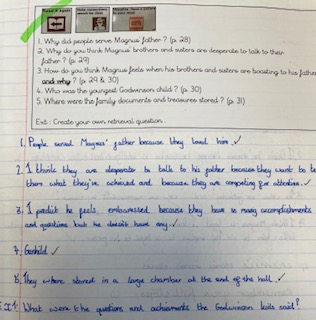 Read it again
1. Why did people serve Magnus' father ? (p. 28)
2. Why do you think Magnus' brothers and sisters are desperate to talk to their
father ? (p. 29)
3. How do you think Magnus feels when his brothers and sisters are boasting to his father
and why ? (p. 29 & 30)
4. Who was the youngest Godwinson child ? (p. 30)
5. Where were the family documents and treasures stored ? (p. 31)
Ext : Create your own retrieval question.
1. People served Magnus' father because they loved him. ✓
2. I think they are desperate to talk to his father because they want to
them what they've achieved and because they are competing for attention. ✓
3. I predict he feels, embarrassed because they have so many accomplishments
and questions but he doesn't have any. ✓
4. Gunhild ✓
5. They where stored in a large chamber at the end of the hall. ✓
EXT. What were the questions and achievments the Godwinson kids said?